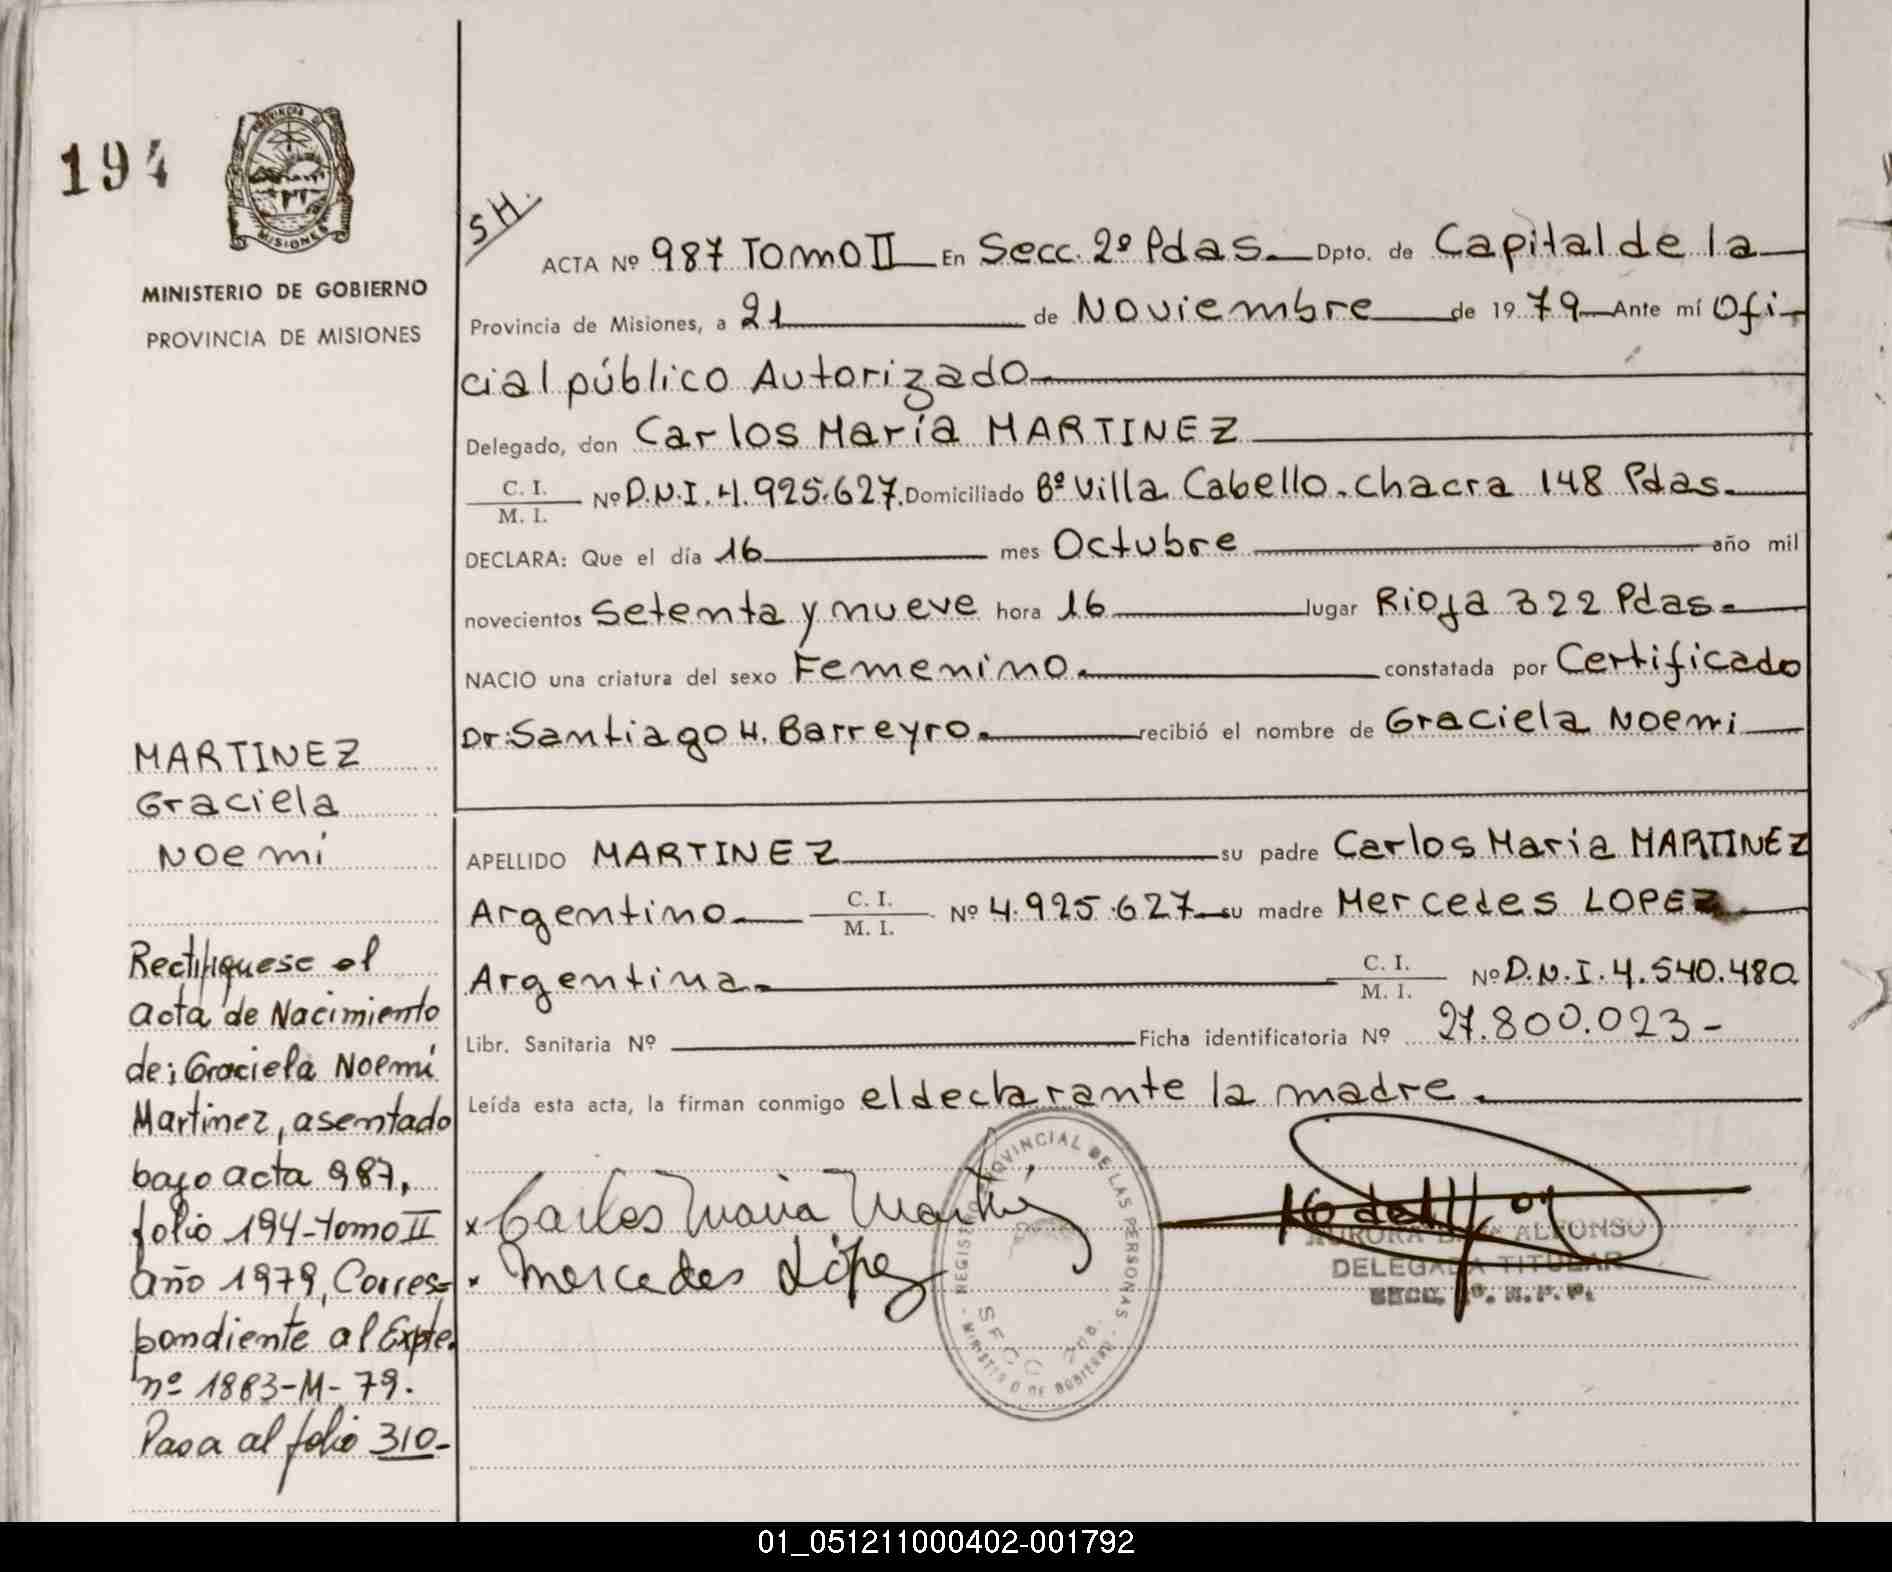 194
PROVINCIA DE
MISIONES
MINISTERIO DE GOBIERNO
PROVINCIA DE MISIONES
SH.
ACTA Nº 987 Tomo II En Secc. 2º Pdas. Dpto. de Capital de la
Provincia de Misiones, a 21 de Noviembre de 1979 Ante mí Ofi-
cial público Autorizado
Delegado, don Carlos María MARTINEZ
C. I.
M. I.
Nº D.N.I. 4.925.627. Domiciliado Bº Villa Cabello. chacra 148 Pdas.
DECLARA: Que el día 16 mes Octubre año mil
novecientos setenta y nueve hora 16 lugar Rioja 322 Pdas.
NACIO una criatura del sexo Femenino. constatada por Certificado
Dr: Santiago H. Barreyro. recibió el nombre de Graciela Noemi
MARTINEZ
Graciela
Noemi
APELLIDO MARTINEZ su padre Carlos Maria MARTINEZ
Argentino C. I.
M. I.
Nº 4.925.627 su madre Mercedes LOPEZ
Argentina. C. I.
M. I.
Nº D.N.I. 4.540.480
Libr. Sanitaria Nº Ficha identificatoria Nº 27.800.023-
Leída esta acta, la firman conmigo el declarante la madre.
Rectifiquese el
acta de Nacimiento
de; Graciela Noemí
Martinez, asentado
bajo acta 987,
folio 194-tomo II
año 1979, Corres=
pondiente al Expte.
nº 1883-M-79.
Pasa al folio 310-
x Carlos Maria Martinez
x Mercedes López
REGISTRO PROVINCIAL DE LAS PERSONAS
MINISTERIO DE GOBIERNO
SECC
AURORA ALFONSO
DELEGADA TITULAR
SECC. R. P. P.
01_051211000402-001792